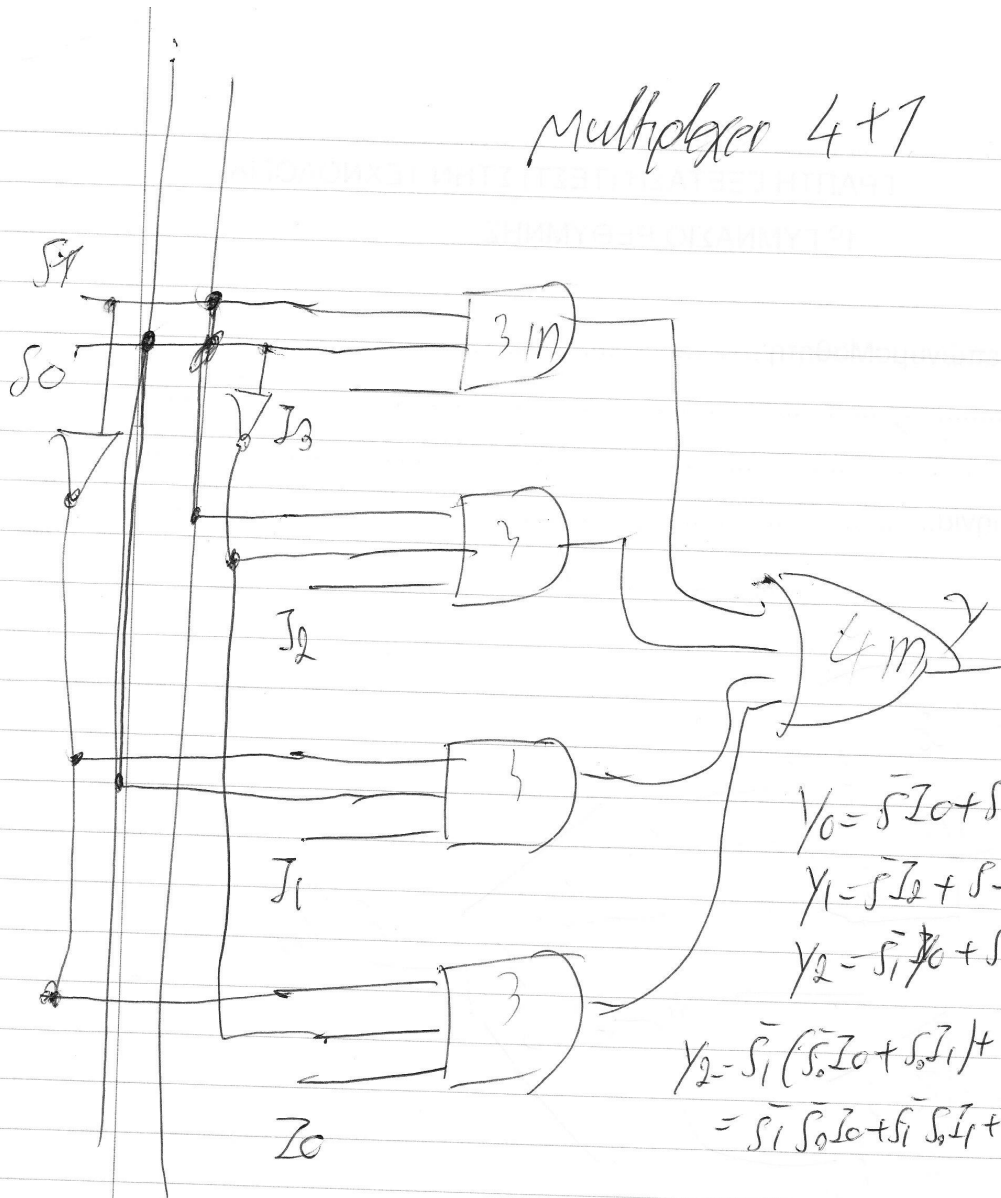 Multiplexer 4+1
S1
S0
3 in
I3
3
I2
4 in
Y
3
I1
Y0 = S̄I0 + S
Y1 = S̄I2 + S
Y2 = S̄1Y0 + S
3
Y2 = S̄1(S̄0I0 + S0I1) +
= S̄1 S̄0I0 + S̄1 S0I1 +
I0